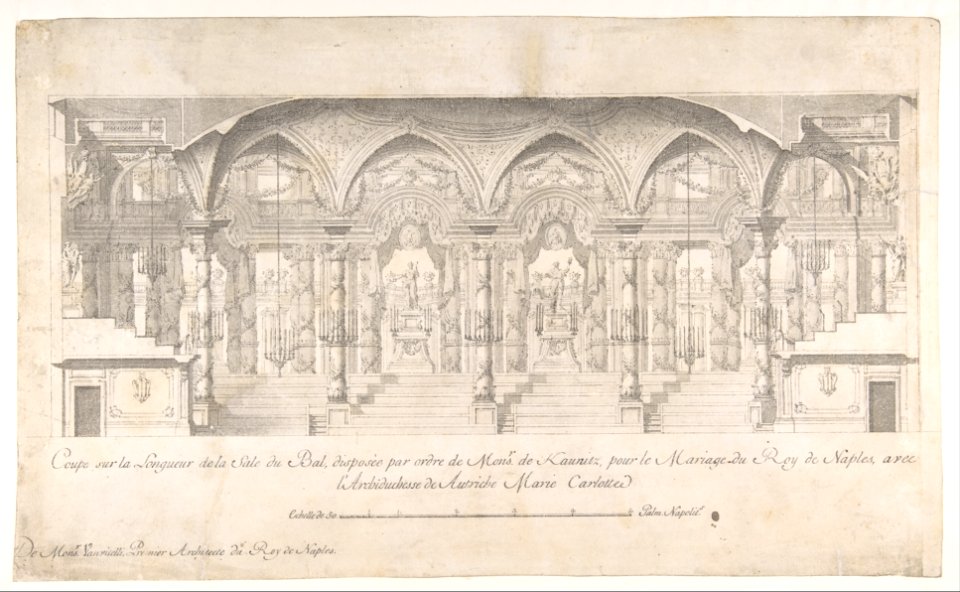 Coupe sur la Longueur de la Sale du Bal, disposée par ordre de Monsr. de Kaunitz, pour le Mariage du Roy de Naples, avec
l'Archiduchesse de Autriche Marie Carlotte
Echelle de 50 Palm. Napolit.s
De Monsr. Vanvitelli, Premier Architecte du Roy de Naples.